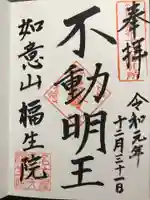 奉拝
令和元年
十二月三十一日
不動明王
如意山 福生院